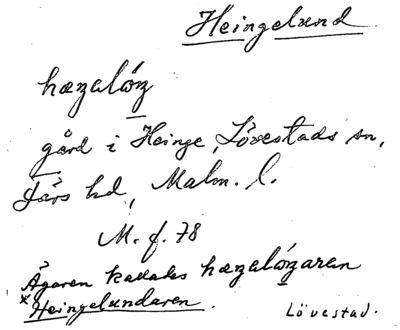 Heingelund
hæzalóz
gård i Heinge, Lövestads sn,
Färs hd, Malm. l.
M. f. 78
Ägaren kallades hæzalózaren
x Heingelundaren.
Lövestad.